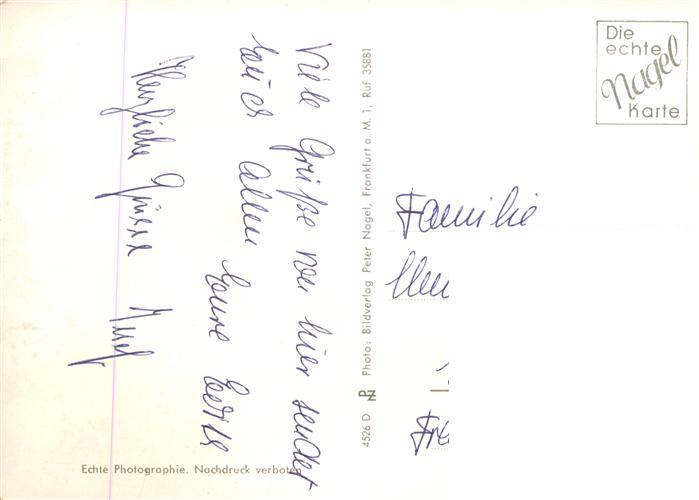 Viele Grüße von hier sendet
Euch allen
Eure
Herzliche Grüsse
Photo: Bildverlag Peter Nagel, Frankfurt a. M. 1, Ruf 35881
4526 D
Echte Photographie. Nachdruck verboten
Die
echte
Nagel
Karte
Familie